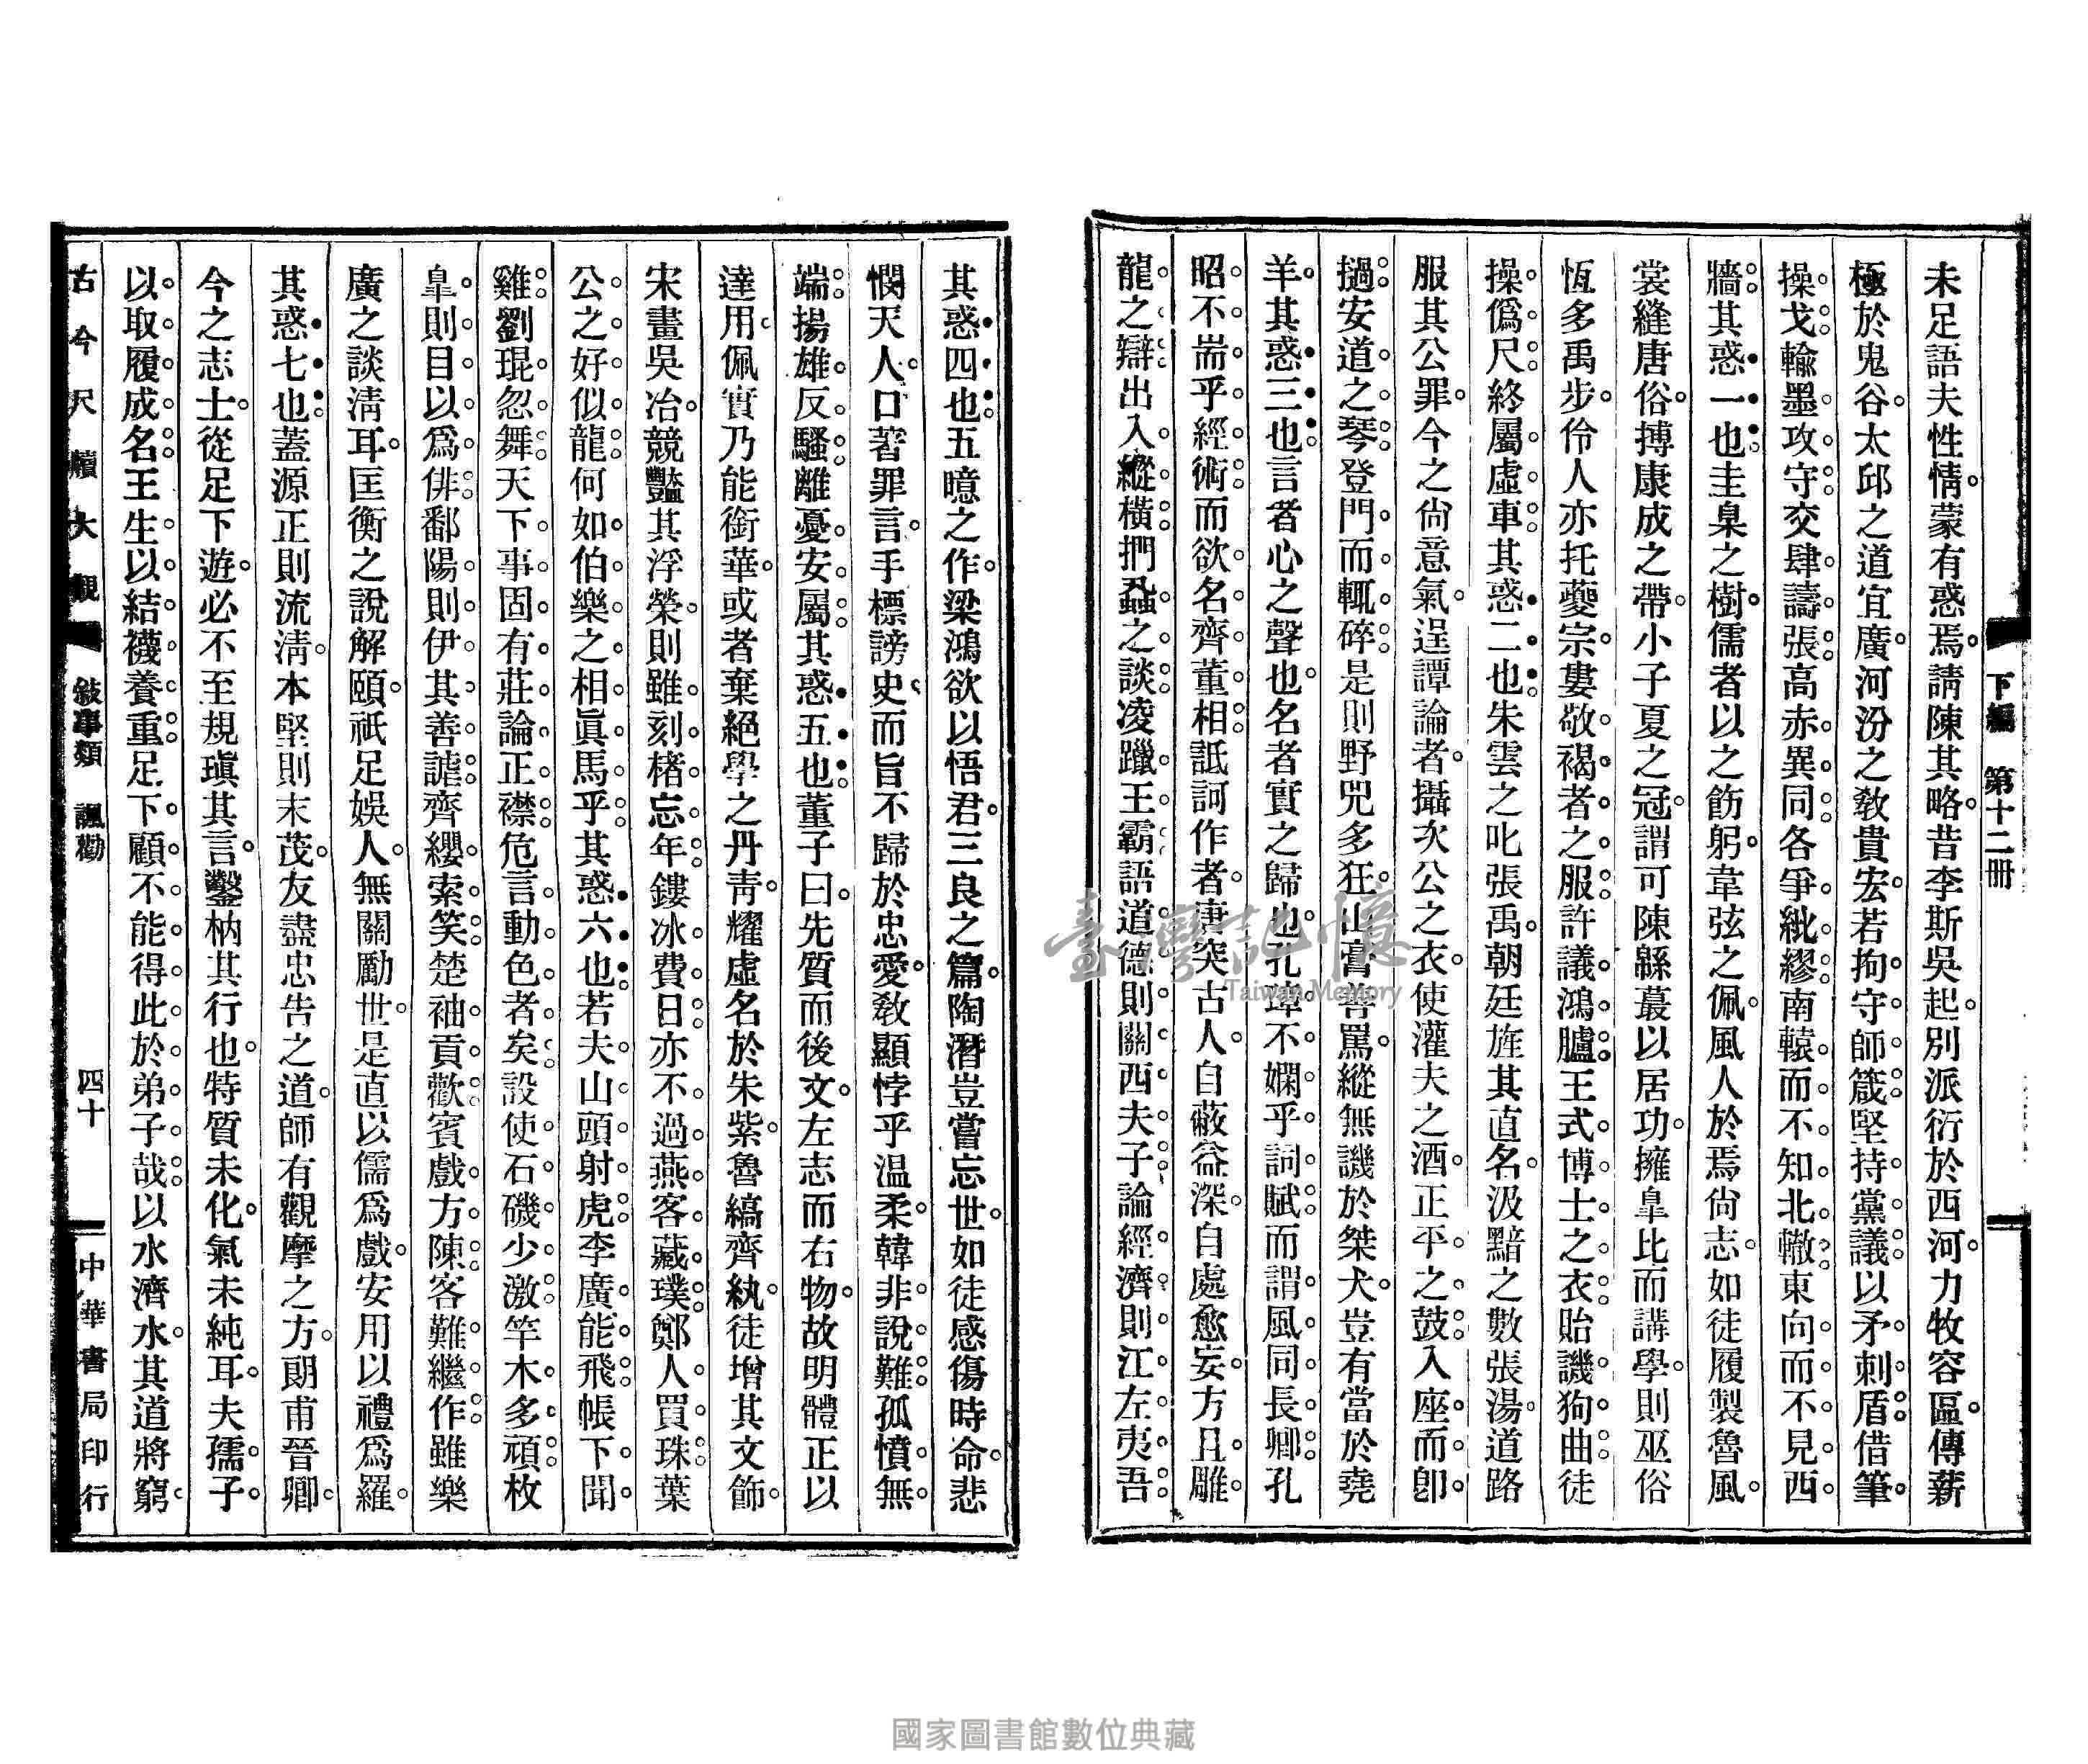 下編 第十二冊
未足語夫性情蒙有惑焉請陳其略昔李斯吳起別派衍於西河力牧容區傳薪
極於鬼谷太邱之道宜廣河汾之敎貴宏若拘守師箴堅持黨議以矛刺盾借筆
操戈輸墨攻守交肆譸張高赤異同各爭紕繆南轅而不知北轍東向而不見西
牆其惑一也圭臬之樹儒者以之飭躬韋弦之佩風人於焉尙志如徒履製魯風
裳縫唐俗搏康成之帶小子夏之冠謂可陳緜蕞以居功擁臯比而講學則巫俗
恆多禹步伶人亦托夔宗婁敬褐者之服許議鴻臚王式博士之衣貽譏狗曲徒
操僞尺終屬虛車其惑二也朱雲之叱張禹朝廷旌其直名汲黯之數張湯道路
服其公罪今之尙意氣逞譚論者攝次公之衣使灌夫之酒正平之鼓入座而卽
撾安道之琴登門而輒碎是則野兕多狂山膏善罵縱無譏於桀犬豈有當於堯
羊其惑三也言者心之聲也名者實之歸也孔璋不嫻乎詞賦而謂風同長卿孔
昭不耑乎經術而欲名齊董相詆訶作者唐突古人自蔽益深自處愈妄方且雕
龍之辯出入縱橫捫蝨之談凌躐王霸語道德則關西夫子論經濟則江左夷吾
其惑四也五噫之作梁鴻欲以悟君三良之篇陶潛豈嘗忘世如徒感傷時命悲
憫天人口著罪言手標謗史而旨不歸於忠愛敎顯悖乎温柔韓非說難孤憤無
端揚雄反騷離憂安屬其惑五也董子曰先質而後文左志而右物故明體正以
達用佩實乃能銜華或者棄絕學之丹靑耀虛名於朱紫魯縞齊紈徒增其文飾
宋畫吳冶競豔其浮榮則雖刻楮忘年鏤冰費日亦不過燕客藏璞鄭人買珠葉
公之好似龍何如伯樂之相眞馬乎其惑六也若夫山頭射虎李廣能飛帳下聞
雞劉琨忽舞天下事固有莊論正襟危言動色者矣設使石磯少激竿木多頑枚
臯則目以爲俳鄱陽則伊其善謔齊纓索笑楚袖貢歡賓戲方陳客難繼作雖樂
廣之談淸耳匡衡之說解頤祇足娛人無關勵世是直以儒爲戲安用以禮爲羅
其惑七也蓋源正則流淸本堅則末茂友盡忠吿之道師有觀摩之方朗甫晉卿
今之志士從足下遊必不至規瑱其言鑿枘其行也特質未化氣未純耳夫孺子
以取履成名王生以結襪養重足下顧不能得此於弟子哉以水濟水其道將窮
古今尺牘大觀 敍事類 諷勸 四十 中華書局印行
臺灣記憶
Taiwan Memory
國家圖書館數位典藏